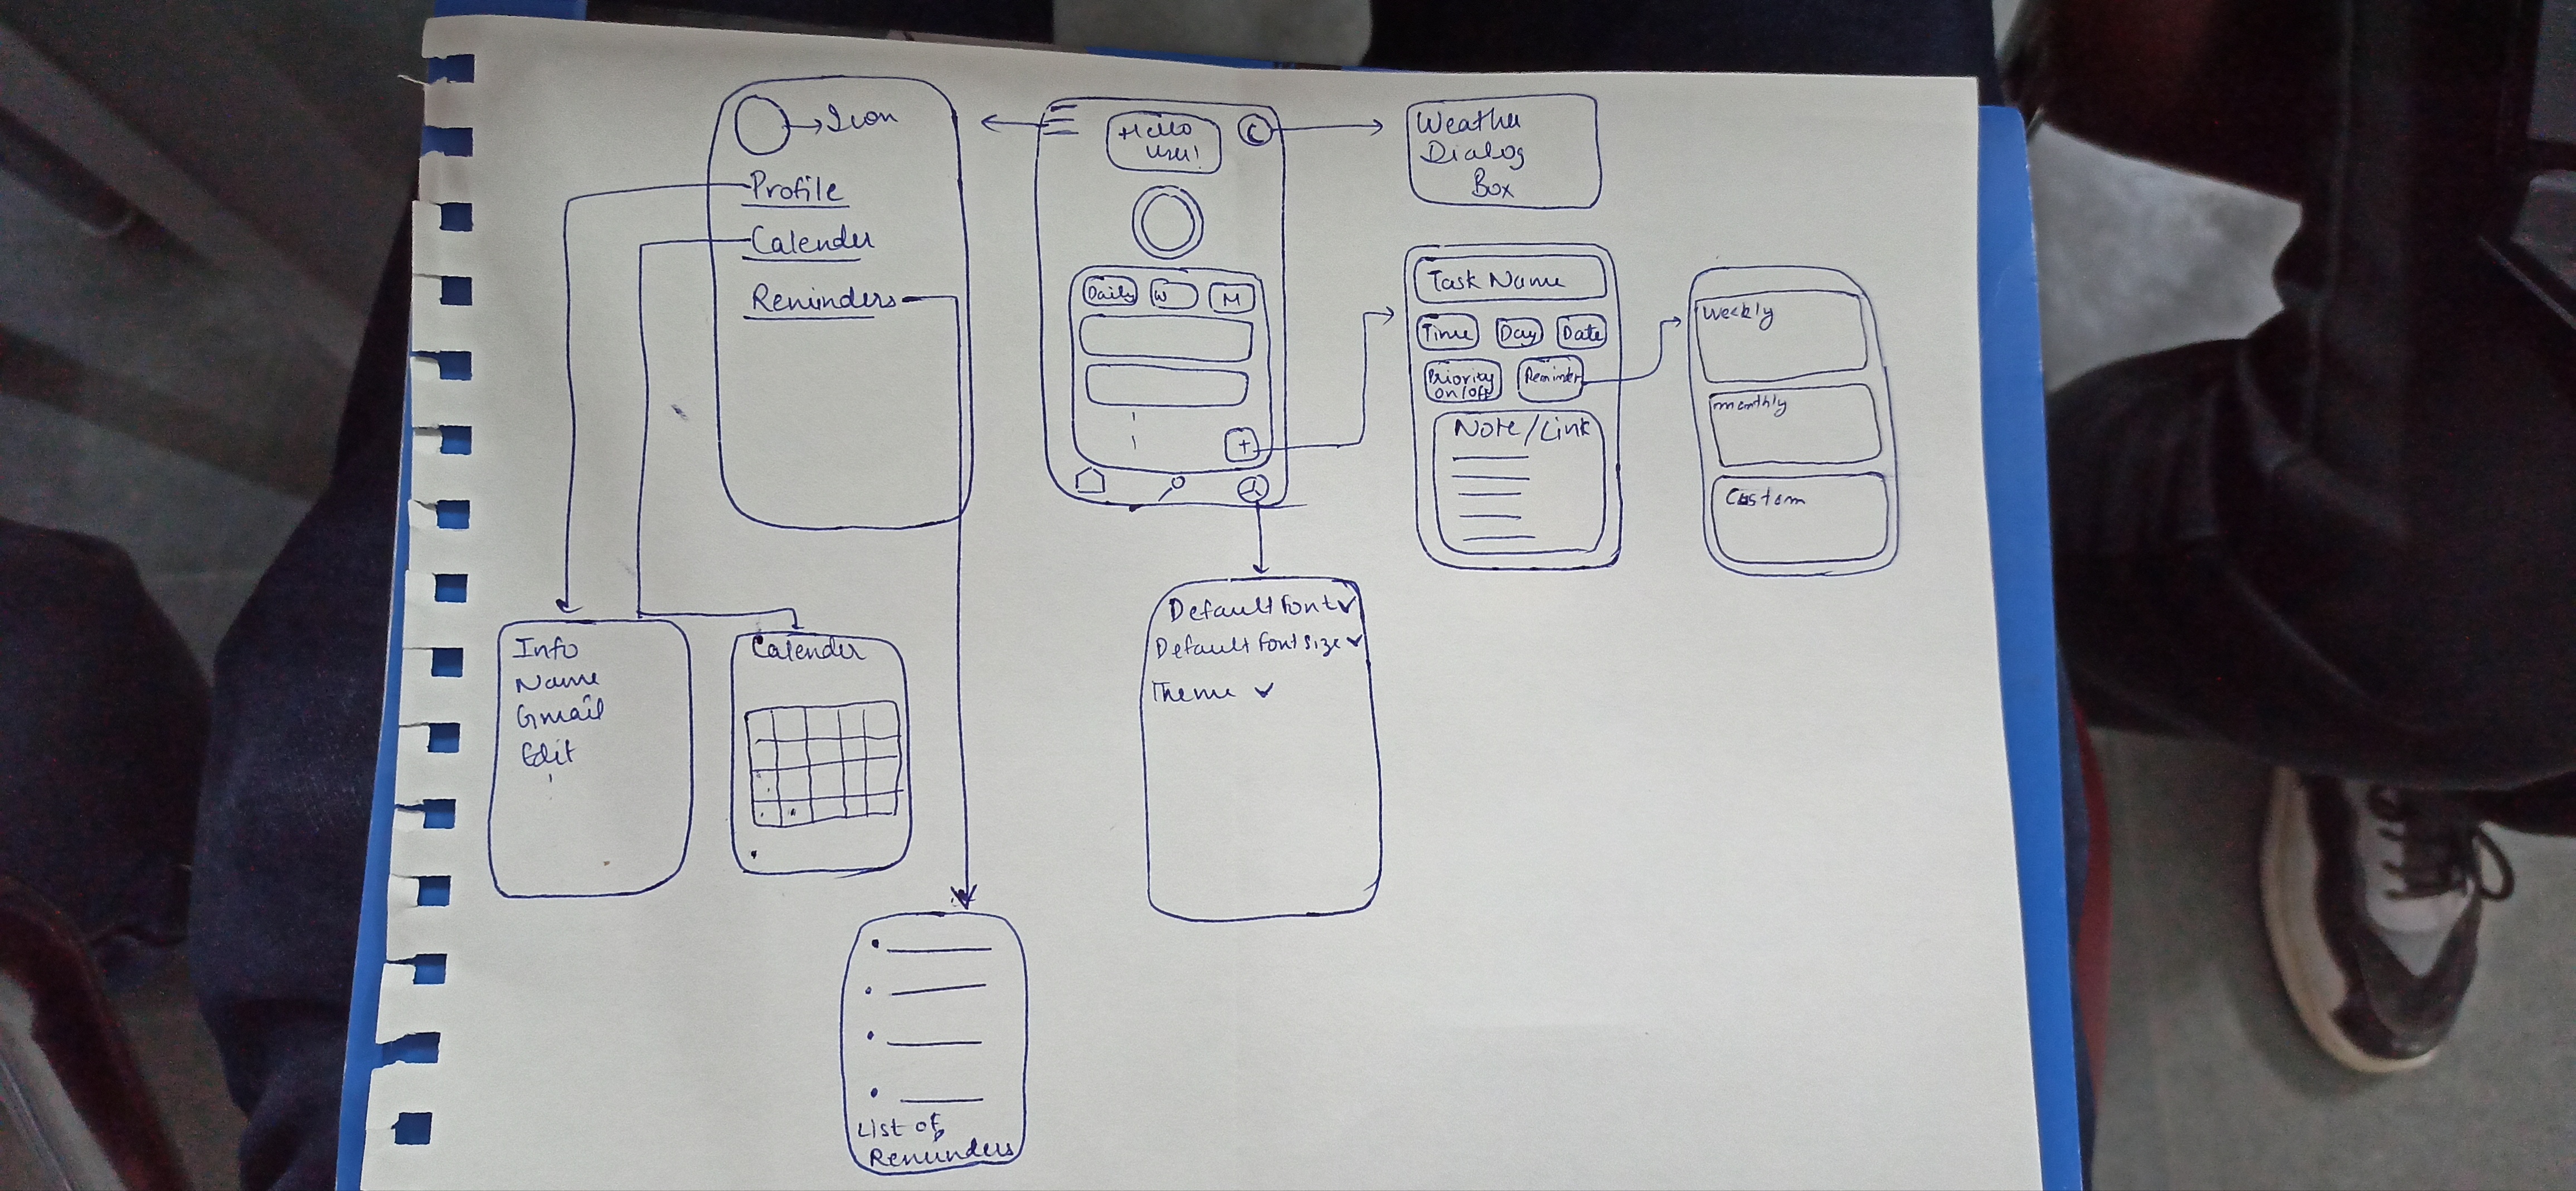 Icon
Profile
Calender
Reminders
Hello
User!
C
Daily
W
M
+
Weather
Dialog
Box
Task Name
Time
Day
Date
Priority
on/off
Reminder
Note/Link
weekly
monthly
Custom
Info
Name
Gmail
Edit
Calender
List of
Reminders
Default Font ✓
Default Font size ✓
Theme ✓